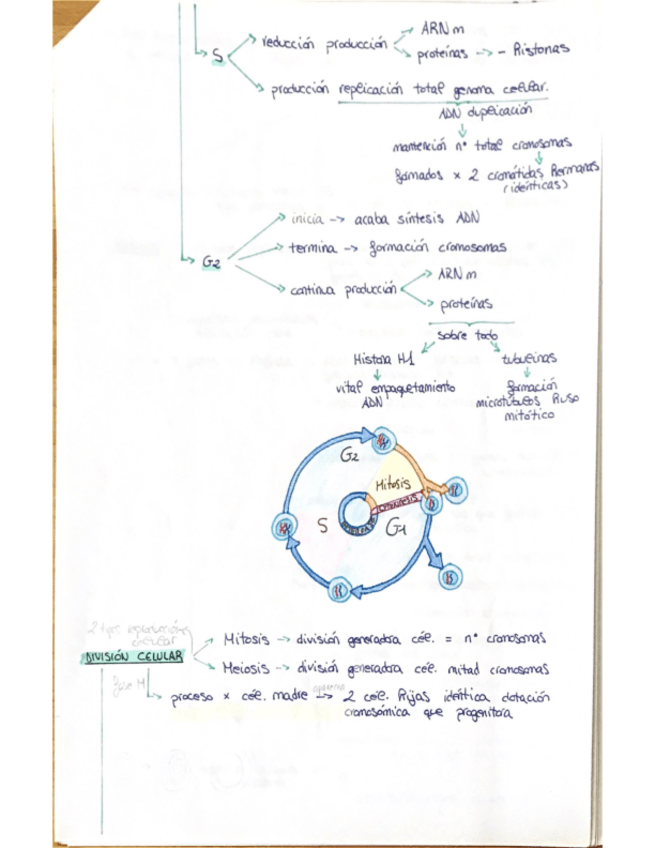 ARNm
reducción producción
S
proteínas -> - Histonas
producción replicación total genoma celular.
ADN duplicación
mantención nº total cromosomas
formados x 2 cromátidas hermanas
(idénticas)
inicia -> acaba síntesis ADN
termina -> formación cromosomas
G2
ARNm
continua producción
proteínas
sobre todo
Histona H1
tubulinas
vital empaquetamiento
ADN
formación
microtúbulos huso
mitótico
G2
Mitosis
citocinesis
S
G1
2 tipos reproducción
celular
Mitosis -> división generadora cél. = nº cromosomas
DIVISIÓN CELULAR
Meiosis -> división generadora cél. mitad cromosomas
fase M
proceso x cél. madre -> 2 cél. hijas idéntica dotación
cromosómica que progenitora